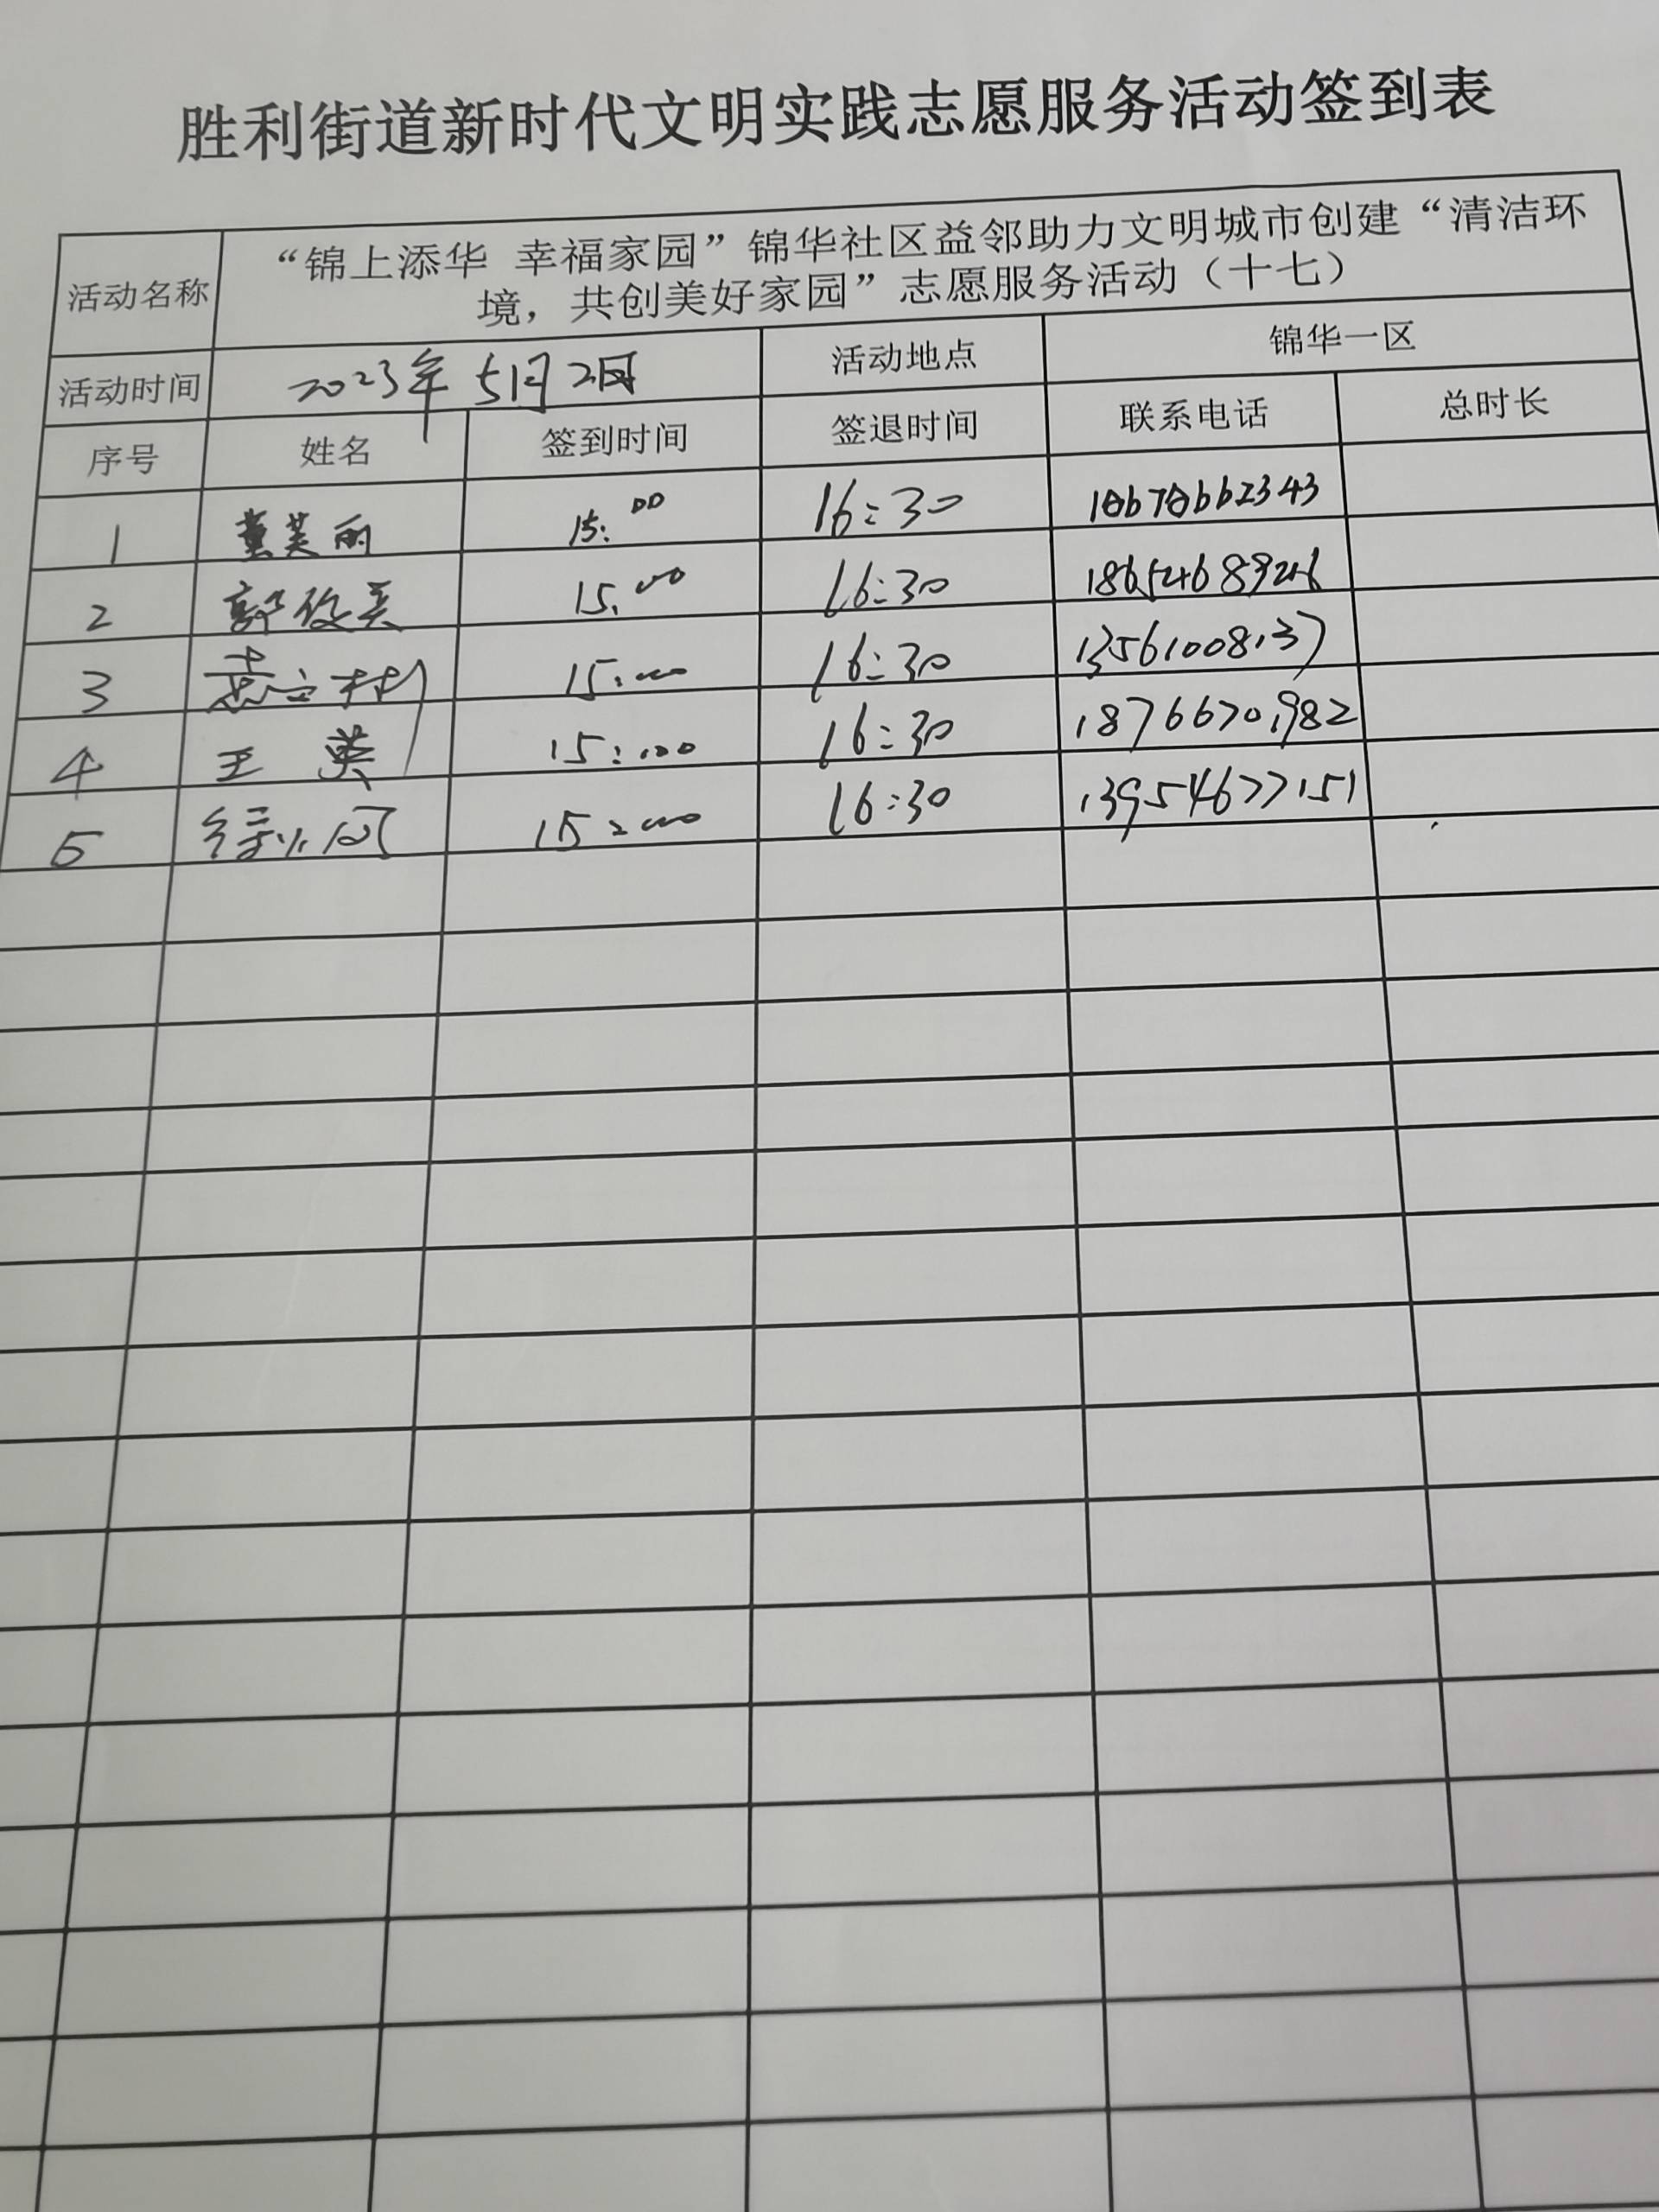 胜利街道新时代文明实践志愿服务活动签到表
活动名称 “锦上添华 幸福家园”锦华社区益邻助力文明城市创建“清洁环
境，共创美好家园”志愿服务活动（十七）
活动时间 2023年5月2日 活动地点 锦华一区
序号 姓名 签到时间 签退时间 联系电话 总时长
1 董芙丽 15:00 16:30 18678662343
2 郭俊美 15:00 16:30
3 15:00 16:30 13561008137
4 王英 15:00 16:30 18766701982
5 15:00 16:30 13954677151